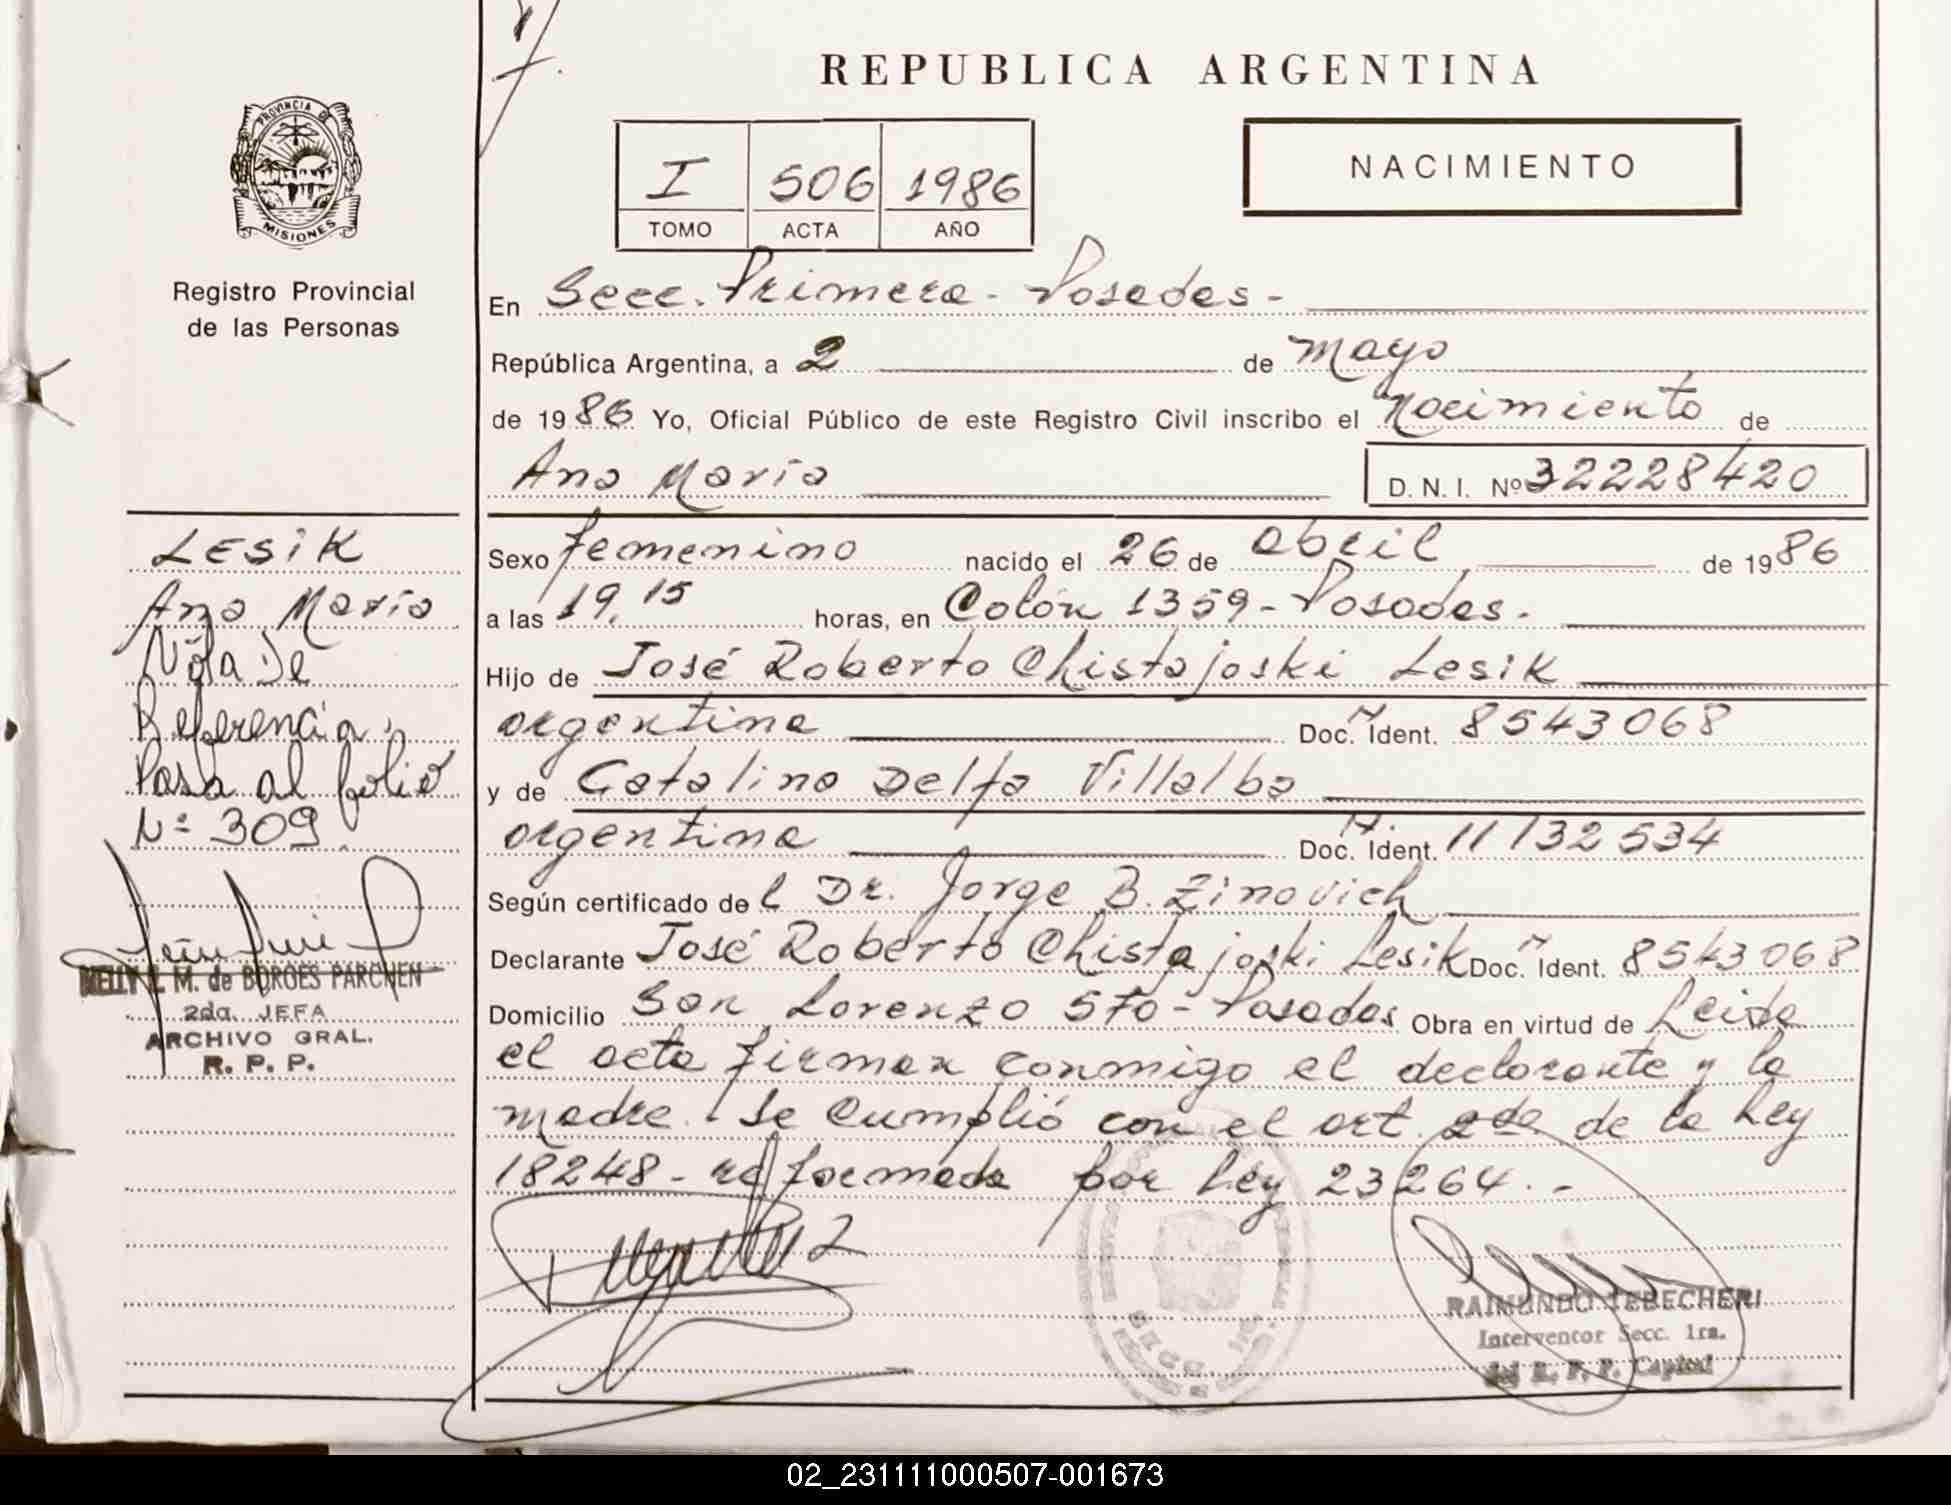 REPUBLICA ARGENTINA
PROVINCIA DE
MISIONES
Registro Provincial
de las Personas
I 506 1986
TOMO ACTA AÑO
NACIMIENTO
En Secc. Primera - Posadas -
República Argentina, a 2 de mayo
de 1986 Yo, Oficial Público de este Registro Civil inscribo el nacimiento de
Ana María D. N. I. Nº 32228420
Sexo femenino nacido el 26 de abril de 1986
a las 19,15 horas, en Colón 1359 - Posadas.
Hijo de José Roberto Chistajoski Lesik
argentina Doc. Ident. 8543068
y de Catalina Delfa Villalba
argentina Doc. Ident. 11132534
Según certificado del Dr. Jorge B. Zinovich
Declarante José Roberto Chistajoski Lesik Doc. Ident. 8543068
Domicilio San Lorenzo 570 - Posadas Obra en virtud de Leida
el acta firman conmigo el declarante y la
madre. Se cumplió con el art. 2do de la Ley
18248 - reformada por Ley 23264. -
LESIK
Ana María
Nota de
Referencia
Pasa al folio
Nº 309
NELLY L. M. de BORGES PARCHEN
2da. JEFA
ARCHIVO GRAL.
R. P. P.
SECC. 1ra.
RAIMUNDO TEBECHERI
Interventor Secc. 1ra.
del R. P. P. Capital
02_231111000507-001673